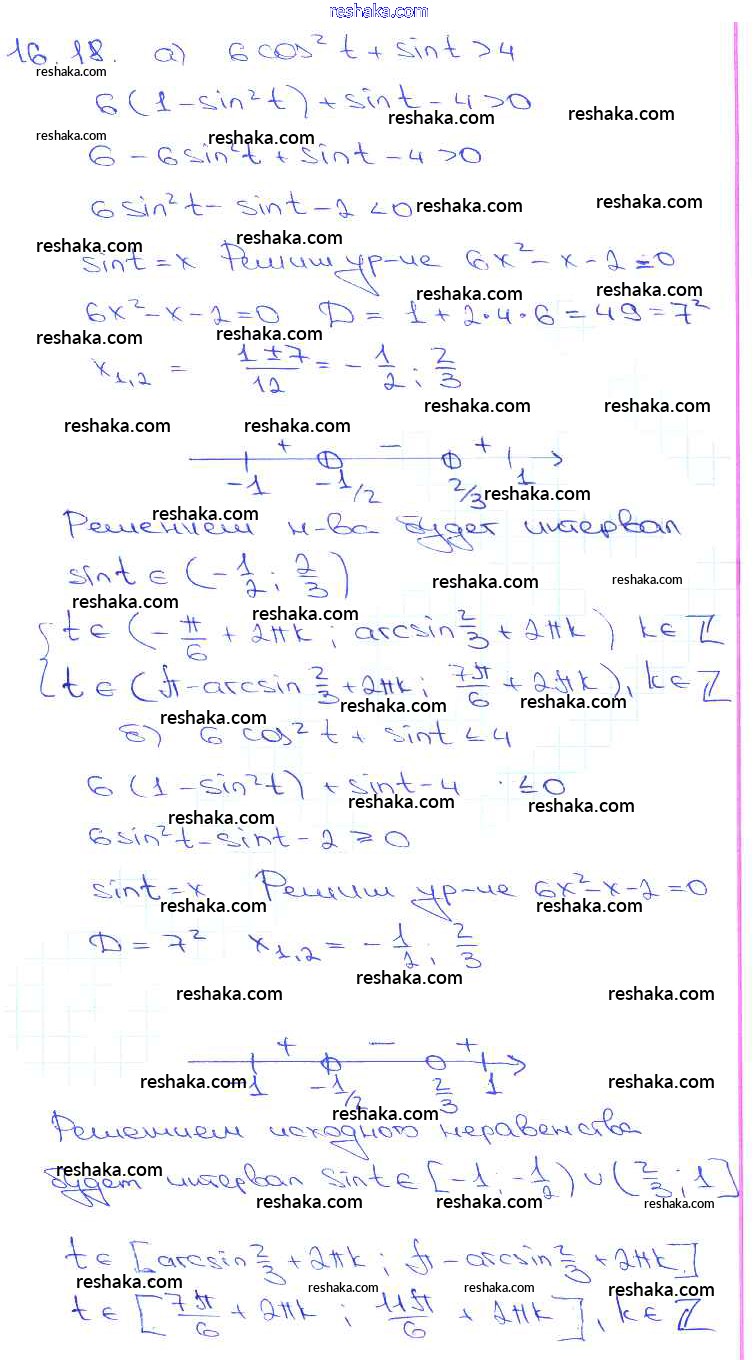 reshaka.com
16.18. а) 6cos²t + sint > 4
reshaka.com
6(1-sin²t) + sint - 4 > 0
reshaka.com reshaka.com
reshaka.com reshaka.com
6 - 6sin²t + sint - 4 > 0
6sin²t - sint - 2 < 0 reshaka.com reshaka.com
reshaka.com reshaka.com
sint = x Решим ур-ие 6x² - x - 2 = 0
reshaka.com reshaka.com
6x² - x - 2 = 0 D = 1 + 2·4·6 = 49 = 7²
reshaka.com reshaka.com
x₁,₂ = (1±7)/12 = -1/2; 2/3
reshaka.com reshaka.com
reshaka.com reshaka.com
+ - +
-1 -1/2 2/3 1
reshaka.com
reshaka.com
Решением н-ва будет интервал
sint ∈ (-1/2; 2/3)
reshaka.com reshaka.com
reshaka.com reshaka.com
{ t ∈ (-π/6 + 2πk; arcsin 2/3 + 2πk) k ∈ Z
t ∈ (π - arcsin 2/3 + 2πk; 7π/6 + 2πk), k ∈ Z
reshaka.com reshaka.com
reshaka.com
б) 6cos²t + sint ≤ 4
6(1-sin²t) + sint - 4 ≤ 0
reshaka.com reshaka.com
reshaka.com
6sin²t - sint - 2 ≥ 0
sint = x Решим ур-ие 6x² - x - 2 = 0
reshaka.com reshaka.com
D = 7² x₁,₂ = -1/2; 2/3
reshaka.com
reshaka.com reshaka.com
+ - +
-1 -1/2 2/3 1
reshaka.com reshaka.com
reshaka.com
Решением исходного неравенства
будет интервал sint ∈ [-1; -1/2) ∪ (2/3; 1]
reshaka.com
reshaka.com reshaka.com reshaka.com
t ∈ [arcsin 2/3 + 2πk; π - arcsin 2/3 + 2πk]
reshaka.com reshaka.com reshaka.com reshaka.com
t ∈ [7π/6 + 2πk; 11π/6 + 2πk], k ∈ Z